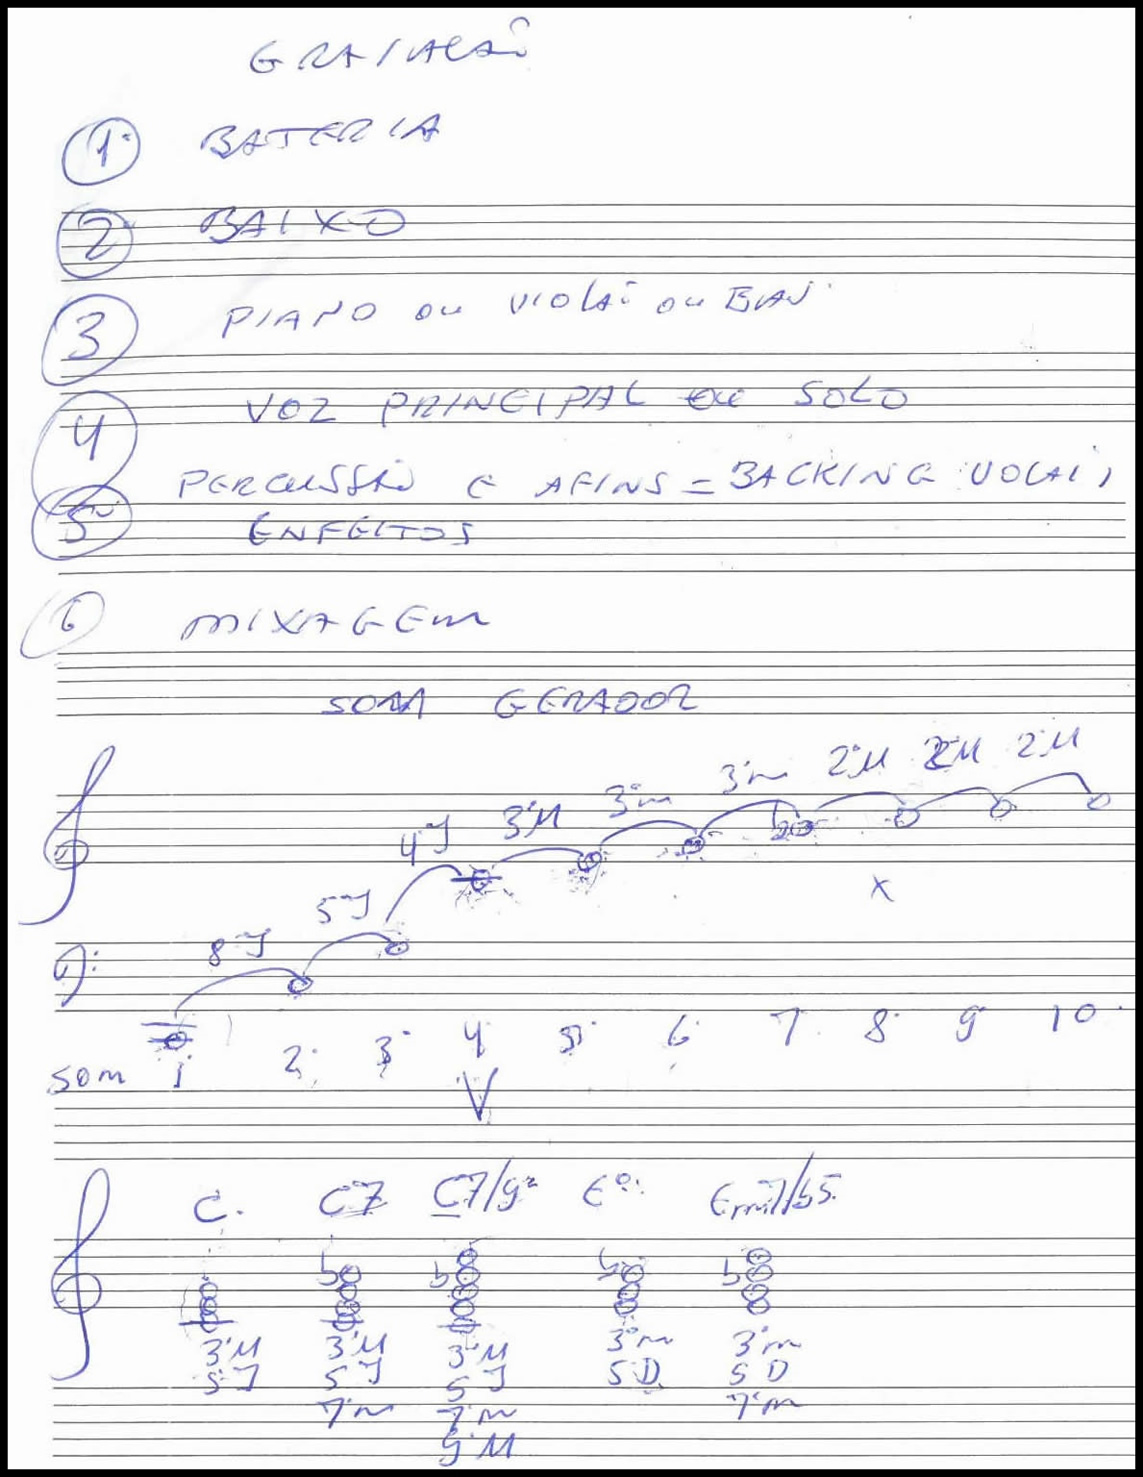 GRAVAÇÃO
1º BATERIA
2 BAIXO
3 PIANO ou VIOLÃO ou BAN
4 VOZ PRINCIPAL ou SOLO
5º PERCUSSÃO E AFINS = BACKING VOCAI,
ENFEITOS
6 MIXAGEM
SOM GERADOR
8ªJ 5ªJ 4ªJ 3ªM 3ªm 3ªm 2ªM 2ªM 2ªM
X
som 1 2 3 4 5 6 7 8 9 10
V
C. C7 C7/9ª Eº Em7/b5
b b b b b
3ªM 3ªM 3ªM 3ªm 3ªm
5J 5J 5J 5D 5D
7ªm 7ªm 7ªm
9M